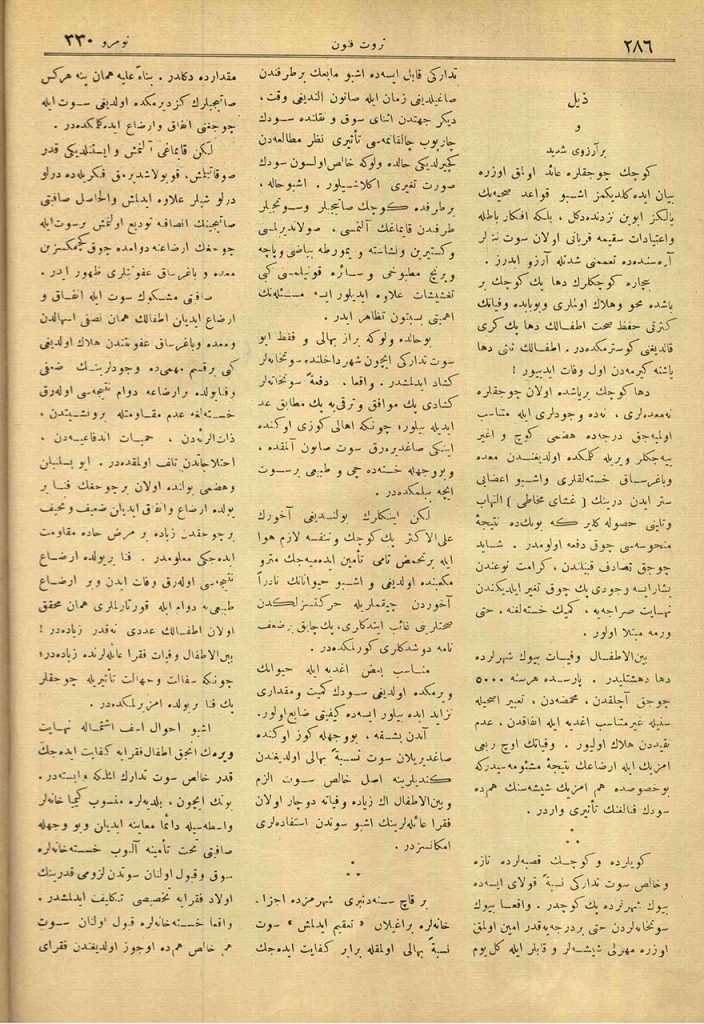 ٢٨٦
ثروت فنون
نومرو ٣٣٠
ذيل
و
بر آرزوى شديد
كوچك چوجقلره عائد اولمق اوزره
بيان ايده كلديكمز اشبو قواعد صحيه‌يك
يالكز ابوين نزدنده‌دكل ، بلكه افكار باطله
و اعتيادات سقيمه قربانى اولان سوت ننه‌لر
آره‌سنده‌ده تعممنى شدتله آرزو ايدرز .
بيچاره كوچكلرك دها پك كوچك بر
باشده محو وهلاك اولملرى وبوبابده وفياتك
كثرتى حفظ صحت اطفالك دها پك كرى
قالديغنى كوسترمكده‌در . اطفالك ثلثى دها
ياشنه كيرمه‌دن اول وفات ايدييور !
دها كوچك بر ياشده اولان چوجقلره
نه معده‌لرى ، نه‌ده وجودلرى ايله متناسب
اولميه‌جق درجه‌ده هضمى كوچ و اغير
ييه‌جكلر ويريله كلمكده اولديغندن معده
وباغرساق خسته‌لقلرى واشبو اعضايى
ستر ايدن درينك ( غشاى مخاطى ) التهاب
وتلينى حصوله كلير كه بونك‌ده نتيجۀ
منحوسه‌سى چوق دفعه اولومدر . شايد
چوجق تصادف قبيلندن ، كرامت نوعندن
يشارايسه وجودى پك چوق تغير ايلديكندن
نهايت صراجه‌يه ، كميك خسته‌لغنه ، حتى
ورمه مبتلا اولور .
بين‌الاطفال وفيات بيوك شهرلرده
دها دهشتليدر . پارسده هرسنه ٥٠٠٠
چوجق آچلقدن ، مخمصه‌دن ، تعبير اصحيله
سفيله غيرمتناسب اغديه ايله اتفاقدن ، عدم
تقيددن هلاك اوليور . وفياتك اوچ ربعى
امزيك ايله ارضاعك نتيجۀ مشئومه‌سيدركه
بوخصوصده هم امزيك شيشه‌سنك هم‌ده
سودك فنالغنك تأثيرى واردر .
⁂
كويلرده و كوچك قصبه‌لرده تازه
وخالص سوت تداركى نسبةً قولاى ايسه‌ده
بيوك شهرلرده پك كوچدر . واقعا بيوك
سوتخانه‌لردن حتى بردرجه‌يه قدر امين اولمق
اوزره مهرلى شيشه‌لر و قابلر ايله كل يوم
تداركى قابل ايسه‌ده اشبو مايعك برطرفدن
صاغيلديغى زمان ايله صاتون النديغى وقت ،
ديكر جهتدن اثناى سوق و نقلنده سودك
چارپوب چالقانمه‌سى تأثيرى نظر مطالعه‌دن
كچيرلديكى حالده ولوكه خالص اولسون سودك
صورت تغيرى اكلاشيلور . اشبوحاله ،
برطرفده كوچك صاتيجيلر وسوتجيلر
طرفندن قايماغنك آلنمسى ، صولانديرلمسى
وكستيرين ونشاسته و يمورطه بياضى وپاچه
وپرنج مطبوخى و سائره قونيلمسى كبى
تغشيشات علاوه ايديلور ايسه مسئله‌نك
اهميتى بسبتون تظاهر ايدر .
بوحالده ولوكه براز بهالى و فقط ايو
سوت تداركى ايچون شهر داخلنده سوتخانه‌لر
كشاد ايدلمشدر . واقعا . دفعةً سوتخانه‌لر
كشادى پك موافق و ترقى‌يه پك مطابق عد
ايديله بيلور؛ چونكه اهالى كوزى اوكنده
اينكى صاغديره‌رق سوت صاتون آلنقده ،
وبووجهله خسته‌ده چى و طبيعى برسوت
ايچه بيلمكده‌در .
لكن اينكلرك بولنديغى آخورك
على‌الاكثر پك كوچك وتنفسه لازم هوا
ايله برتحمض تامى تأمين ايده‌ميه‌جك مترو
مكعبنده اولديغى و اشبو حيواناتك نادراً
آخوردن چيقمه‌لريله حركتسزلكدن
صحتلرينى غائب ايتدكلرى، پك‌چابق برضعف
تامه دوشدكلرى كورلمكده‌در .
مناسب بعض اغديه ايله حيوانك
ويرمكده اولديغى سودك كميت ومقدارى
تزايد ايده بيلور ايسه‌ده كيفيتى ضايع اولور.
آندن بشقه ، بووجهله كوز اوكنده
صاغديريلان سوت نسبةً بهالى اولديغندن
كنديلرينه اصل خالص سوت الزم
وبين‌الاطفال اك زياده وفياته دوچار اولان
فقرا عائله‌لرينك اشبو سوتدن استفاده‌لرى
امكانسزدر .
⁂
بر قاچ سنه‌دنبرى شهرمزده اجزا-
خانه‌لر براغيلان « تعقيم ايدلمش » سوت
نسبةً بهالى اولمقله برابر كفايت ايده‌جك
مقدارده دكلدر . بناءً عليه همان ينه هركس
صاتيجيلرك كزديرمكده اولديغى سوت ايله
چوجغنى انفاق و ارضاع ايده‌كلمكده‌در .
لكن قايماغى آلنمش و ايستنلديكى قدر
صوقاتلمش، قوبولاشديرمق فكريله‌ده درلو
درلو شيلر علاوه ايدلمش والحاصل صافيتى
صاتيجينك انصافنه توديع اولنمش برسوت ايله
چوجغك ارضاعنه دوامده چوق كچمكسزين
معده و باغرساق عفونتلرى ظهور ايدر .
صافتى مشكوك سوت ايله انفاق و
ارضاع ايديلن اطفالك همان نصفى اسهالدن
ومعده وباغرساق عفونتندن هلاك اولديغى
كبى برقسم مهمى‌ده وجودلرينك ضعفى
وفنابولده برارضاعه دوام نتيجه‌سى اوله‌رق
خسته‌لغه عدم مقاومتله برونشيتدن ،
ذات‌الرئه‌دن ، حميات اندفاعيه‌دن ،
احتلاجاتدن تلف اولمقده‌در . ايو بسلنيلن
وهضمى يولنده اولان برچوجغك فنا بر
يولده ارضاع وانفاق ايديلن ضعيف و نحيف
برچوجقدن زياده بر مرض حاده مقاومت
ايده‌جكى معلومدر . فنا بريولده ارضاع
نتيجه‌سى اوله‌رق وفات ايدن وبر ارضاع
طبيعى‌يه دوام ايله قورتارلملرى همان محقق
اولان اطفالك عددى نه‌قدر زياده‌در !
بين‌الاطفال وفيات فقرا عائله‌لرنده زياده‌در؛
چونكه سفالت وجهالت تأثيريله چوجقلر
پك فنا بريولده امزيرلمكده‌در .
اشبو احوال اسف اشتماله نهايت
ويرمك انجق اطفال فقرايه كفايت ايده‌جك
قدر خالص سوت تدارك ايتمكه وابسته‌در .
بونك ايچون ، بلديه‌لره منسوب كيمياخانه‌لر
واسطه‌سيله دائما معاينه ايديلن وبووجهله
صافيتى تحت تأمينه آلنوب خسته‌خانه‌لره
سوق وقبول اولنان سوتدن لزومى قدرينك
اولاد فقرايه تخصيصى تكليف ايدلمشدر .
واقعا خسته‌خانه‌لره قبول اولنان سوت
هم خالص هم‌ده اوجوز اولديغندن فقراى